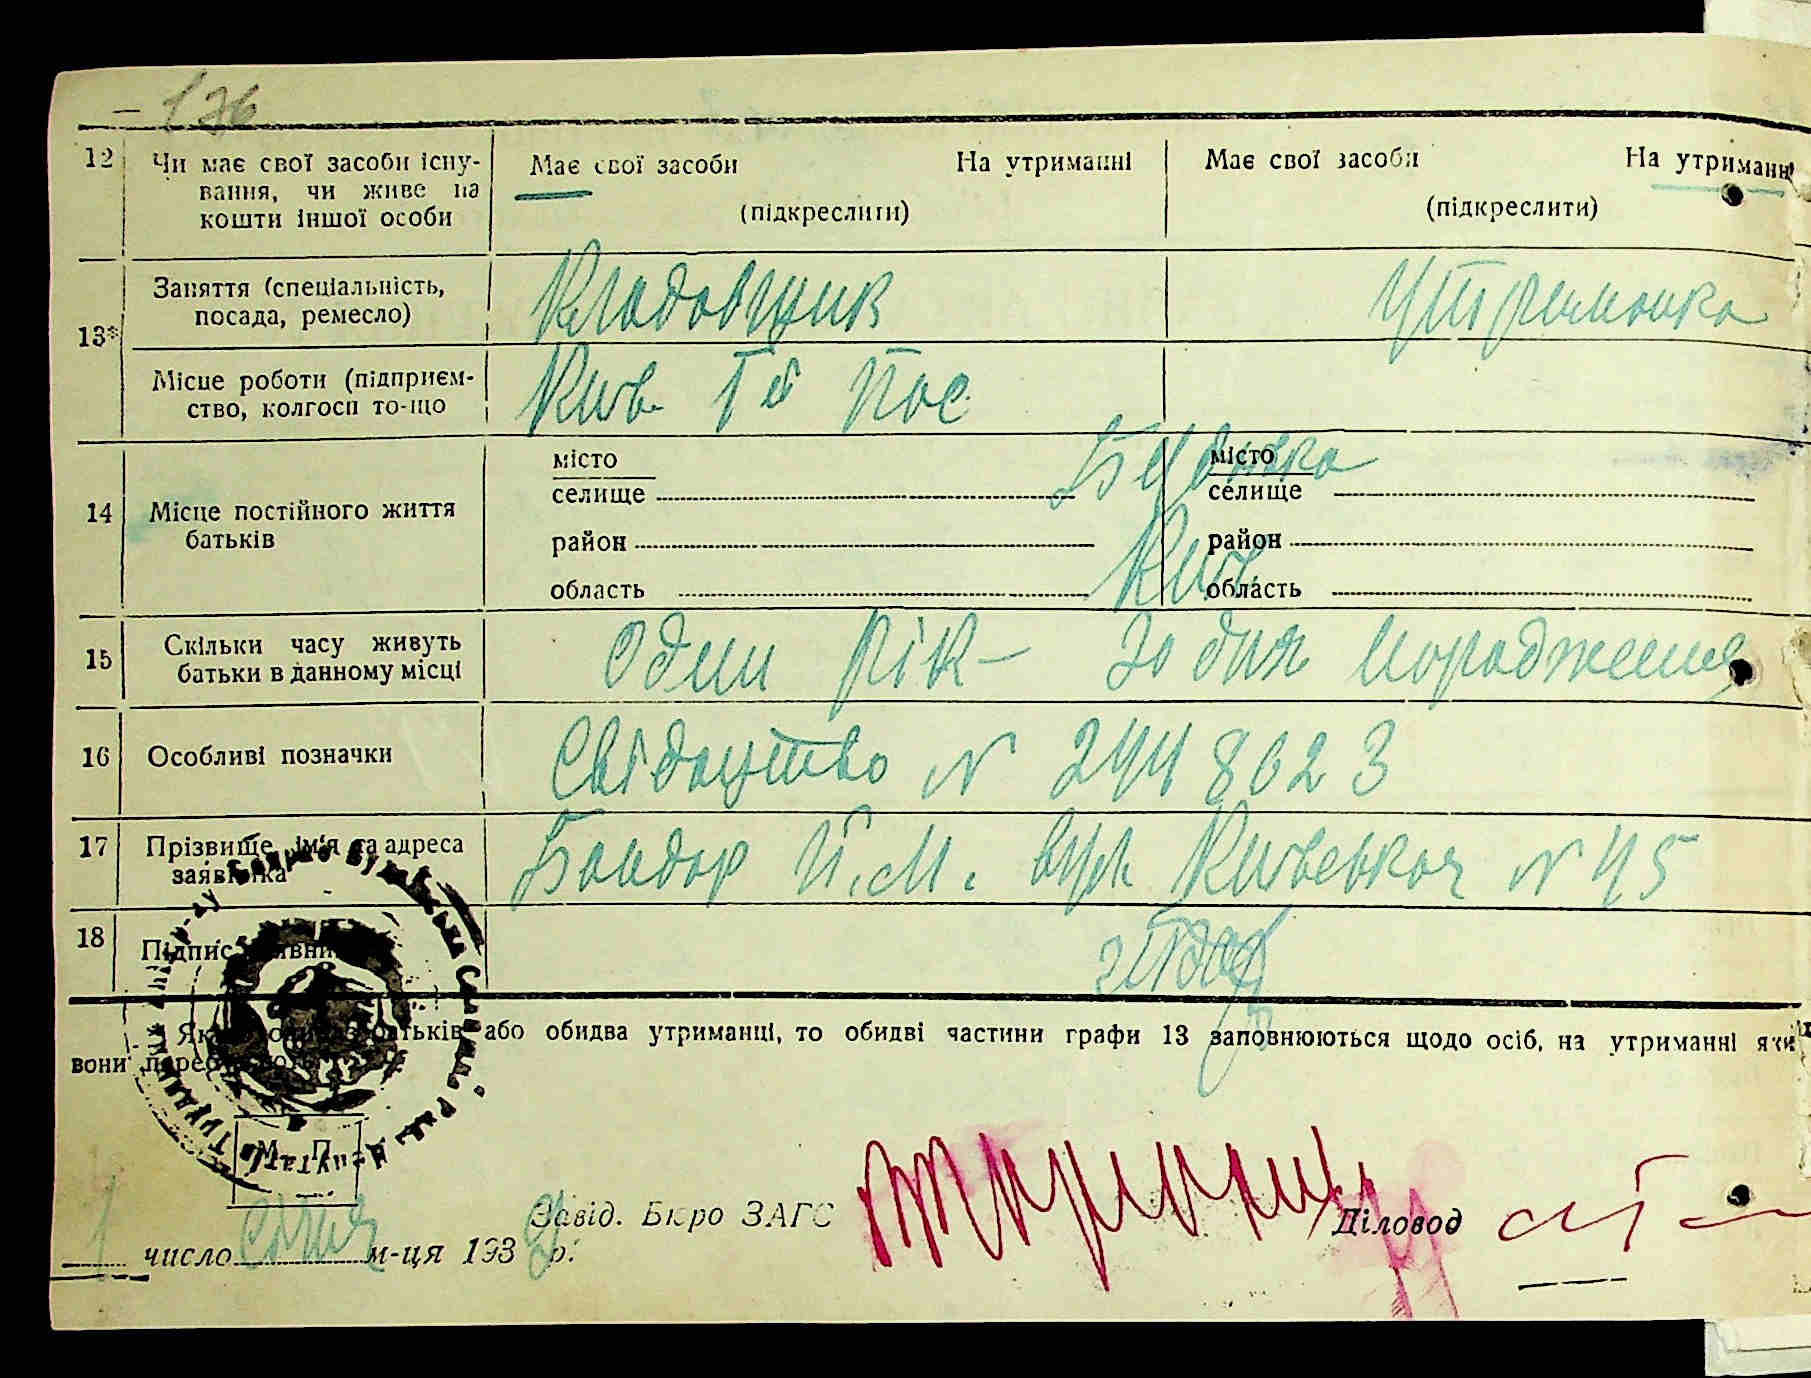 176
12 Чи має свої засоби існу-
вання, чи живе на
кошти іншої особи
Має свої засоби На утриманні
(підкреслити)
Має свої засоби На утриманні
(підкреслити)
13* Заняття (спеціальність,
посада, ремесло)
Кладовщик
Утриманка
Місце роботи (підприєм-
ство, колгосп то-що
Київ
14 Місце постійного життя
батьків
місто
селище
район
область
місто
селище
район
область
Буданівка
Київ
15 Скільки часу живуть
батьки в данному місці
Один рік — зо дня народження
16 Особливі позначки
Свідоцтво N 2448623
17 Прізвище, ім'я та адреса
заявника
Бондар Й. М. вул. Київськая N 45
18 Підпис заявника
Якщо один з батьків або обидва утриманці, то обидві частини графи 13 заповнюються щодо осіб, на утриманні яких
вони перебувають
М. П.
Завід. Бюро ЗАГС
Діловод
1 число січня м-ця 193 р.